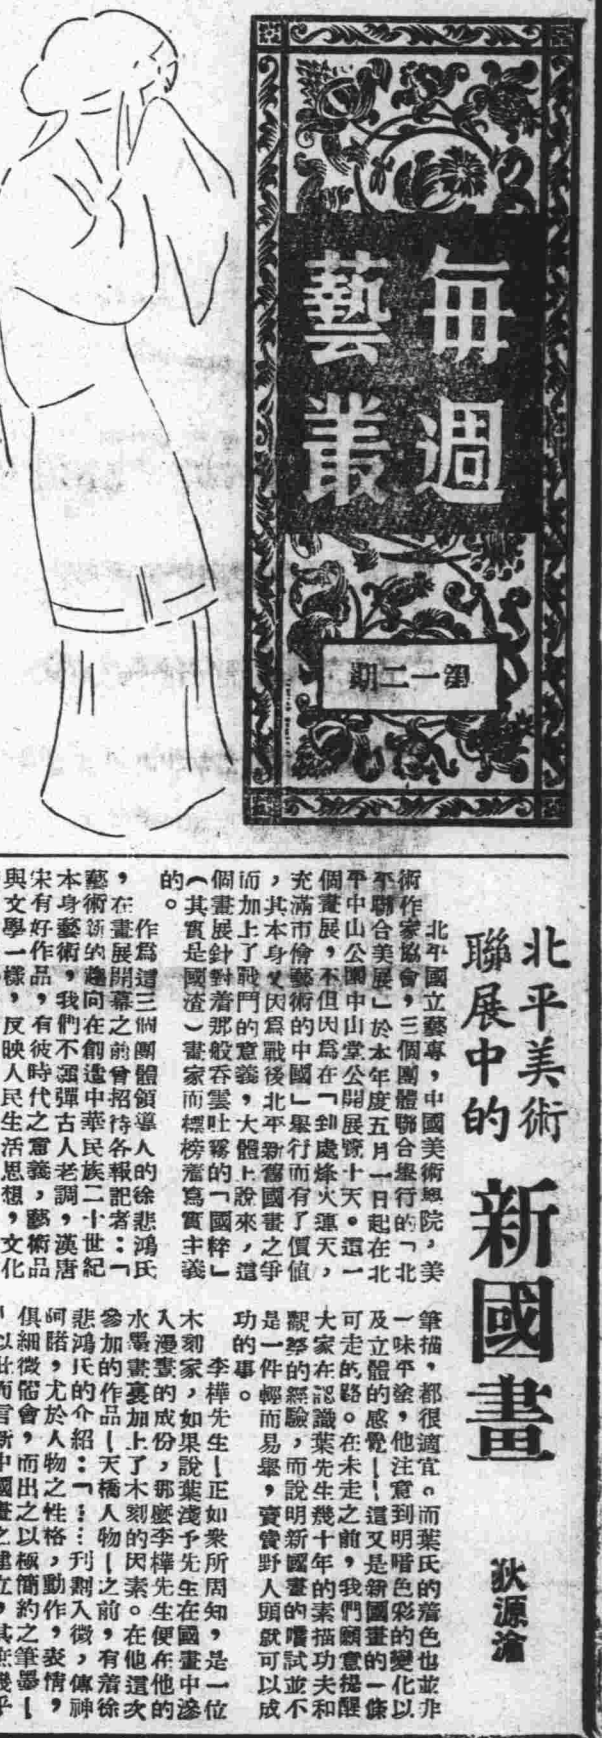 每週
藝叢
北平美術
聯展中的
新國畫
狄源滄
北平國立藝專，中國美術學院，美
術作家協會，三個團體聯合舉行的「北
平聯合美展」於本年度五月一日起在北
平中山公園中山堂公開展覽十天。這一
個畫展，不但因爲在「到處烽火連天，
充滿市儈藝術的中國」舉行而有了價值
，其本身又因爲戰後北平新舊國畫之爭
而加上了戰鬥的意義，大體上說來，這
個畫展針對着那般吞雲吐霧的「國粹」
（其實是國渣）畫家而標榜着寫實主義
的。
作爲這三個團體領導人的徐悲鴻氏
，在畫展開幕之前曾招待各報記者：「
藝術新的趨向在創造中華民族二十世紀
本身藝術，我們不彈古人老調，漢唐
宋有好作品，有彼時代之意義，藝術品
與文學一樣，反映人民生活思想，文化
筆描，都很適宜。而葉氏的着色也並非
一味平塗，他注意到明暗色彩的變化以
及立體的感覺——這又是新國畫的一條
可走的路。在未走之前，我們願意提醒
大家在認識葉先生幾十年的素描功夫和
觀察的經驗，而說明新國畫的嘗試並不
是一件輕而易舉，賣賣野人頭就可以成
功的事。
李樺先生——正如衆所周知，是一位
木刻家，如果說葉淺予先生在國畫中滲
入漫畫的成份，那麼李樺先生便在他的
水墨畫裏加上了木刻的因素。在他這次
參加的作品——天橋人物——之前，有着徐
悲鴻氏的介紹：「……刊劃入微，傳神
阿睹，尤於人物之性格，動作，表情，
俱細微體會，而出之以極簡約之筆墨——
「以此而言新中國畫之建立，其庶幾乎